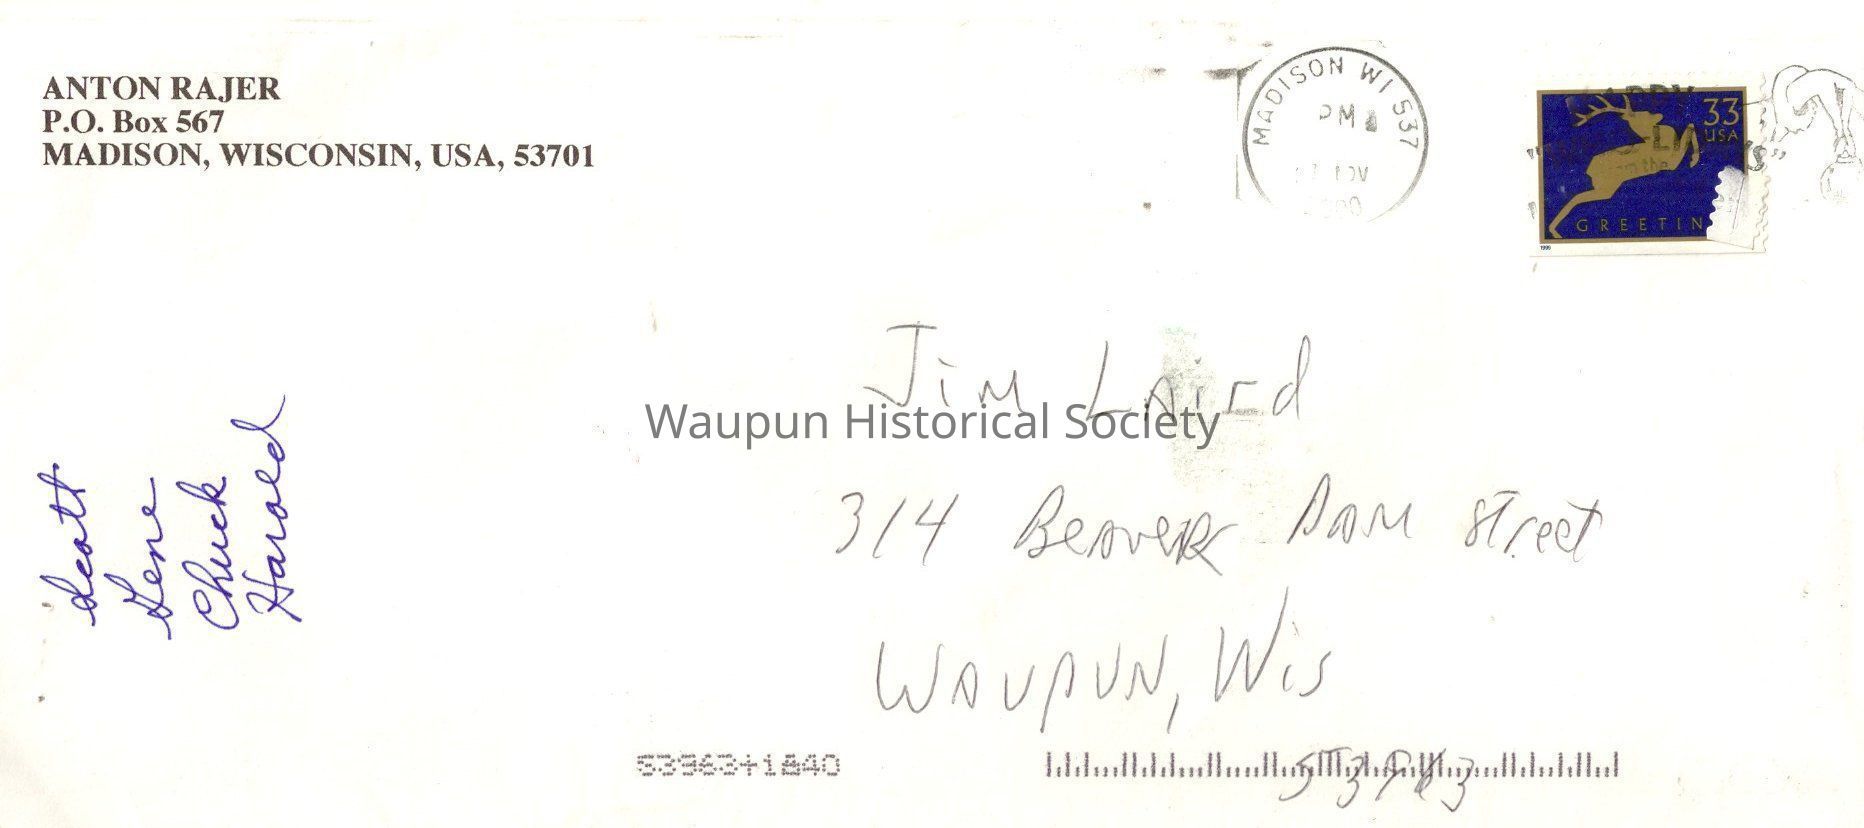 ANTON RAJER
P.O. Box 567
MADISON, WISCONSIN, USA, 53701
MADISON WI 537
PM
NOV
33
USA
from the
GREETIN
1999
Jim Laird
Waupun Historical Society
314 Beaver Dam Street
Waupun, Wis
53963
53963+1840
Scott
Gene
Chuck
Harold